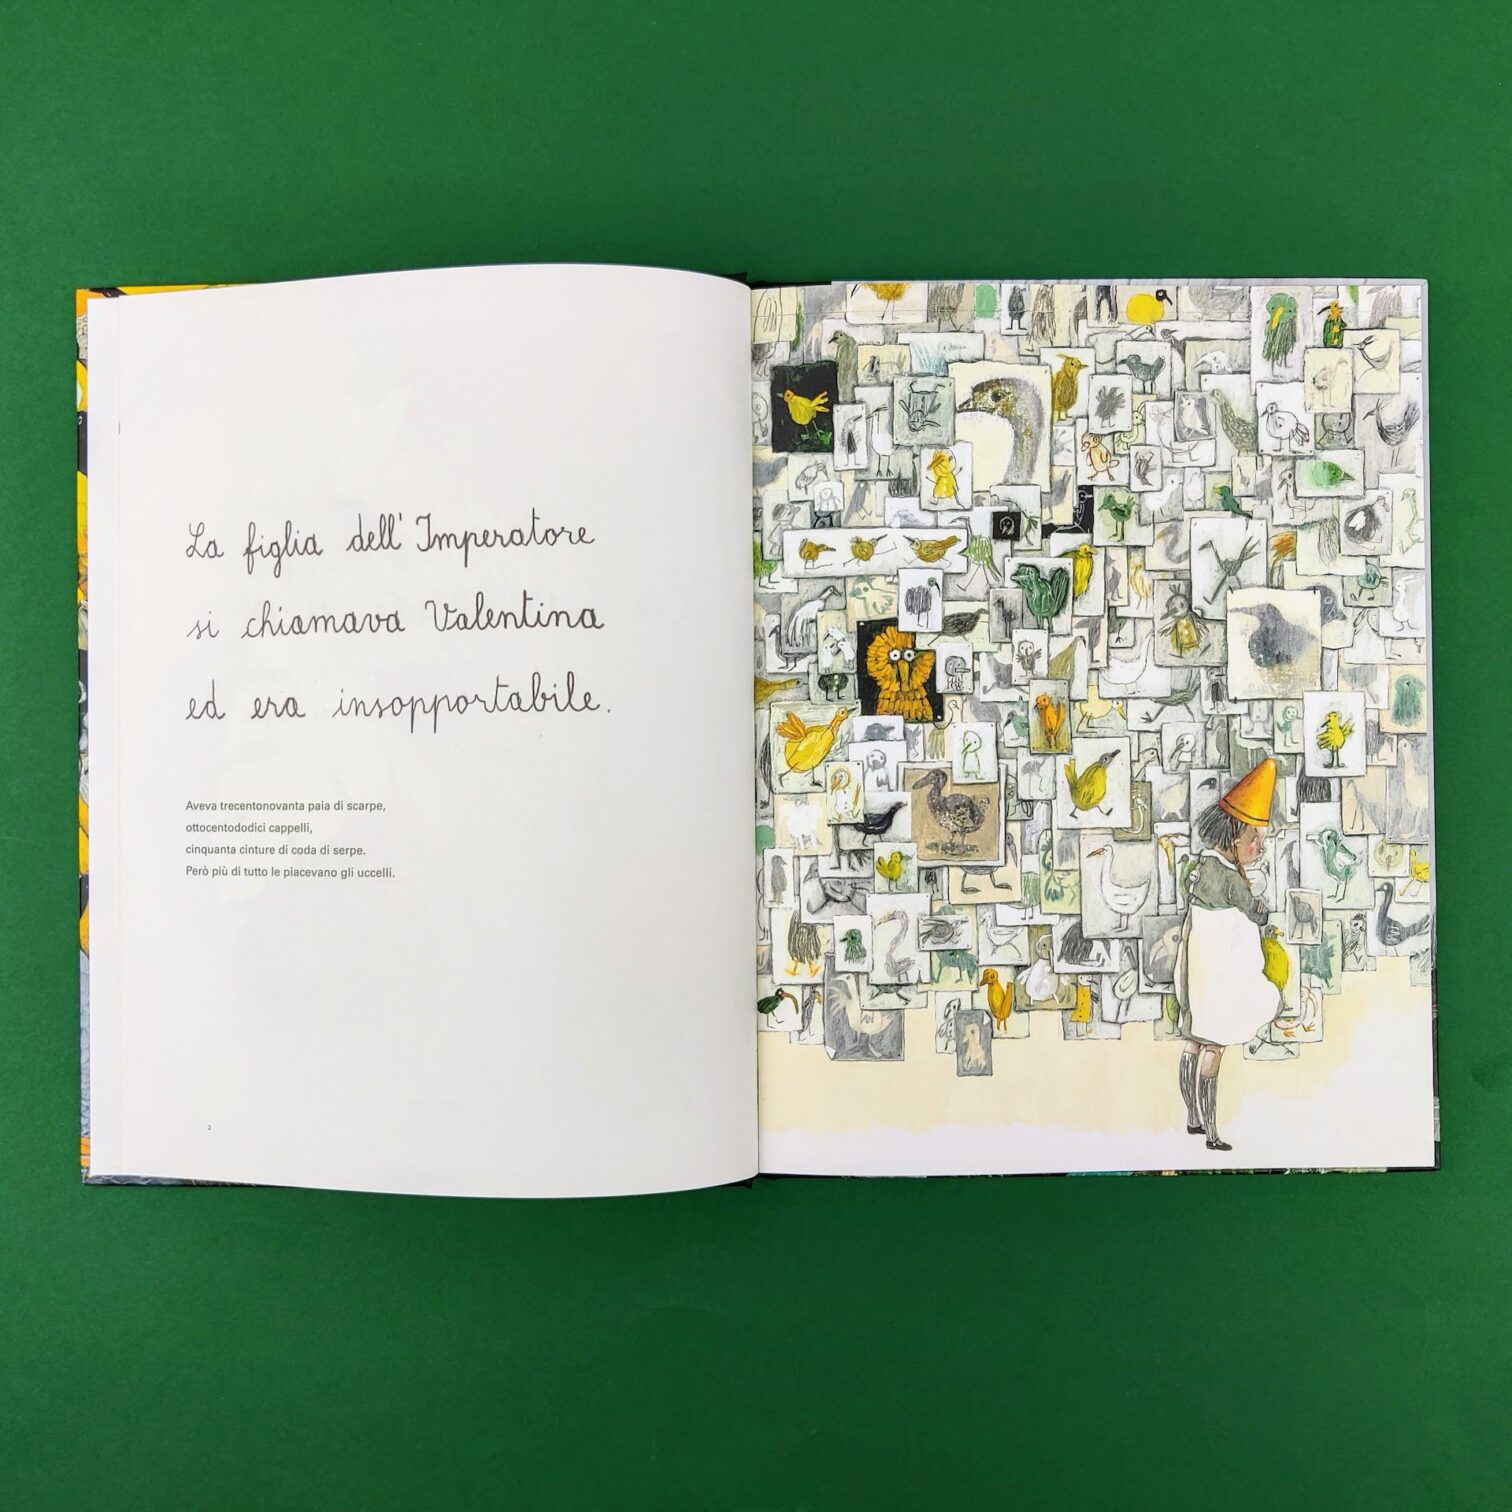 La figlia dell'Imperatore
si chiamava Valentina
ed era insopportabile.
Aveva trecentonovanta paia di scarpe,
ottocentododici cappelli,
cinquanta cinture di coda di serpe.
Però più di tutto le piacevano gli uccelli.
2